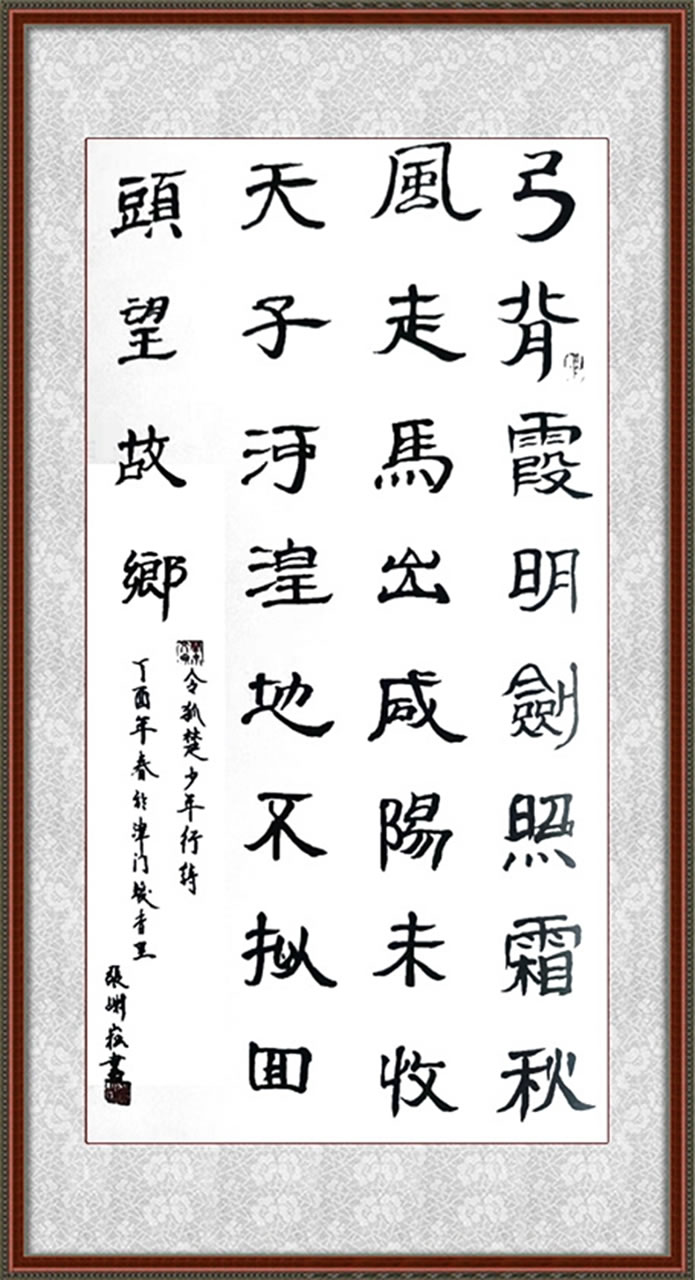 弓背霞明劍照霜秋
風走馬出咸陽未收
天子河湟地不拟回
頭望故鄉
令狐楚少年行詩
丁酉年春於津门
張書